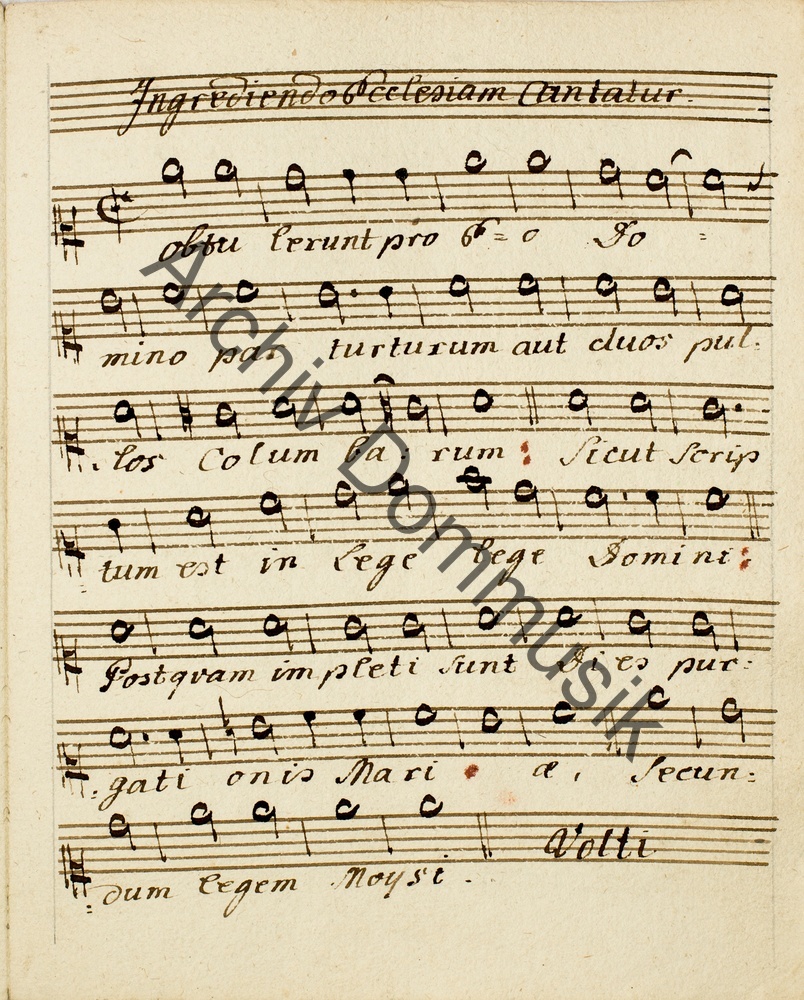 Ingrediendo Ecclesiam Cantatur.
obtu lerunt pro E = o Do =
mino par turturum aut duos pul:
:los Colum ba: rum: Sicut Scrip
tum est in Lege lege Domini:
Postquam impleti sunt Dies pur:
:gati onis Mari æ, Secun:
=dum legem Moysi.
Volti
Archiv Dommusik